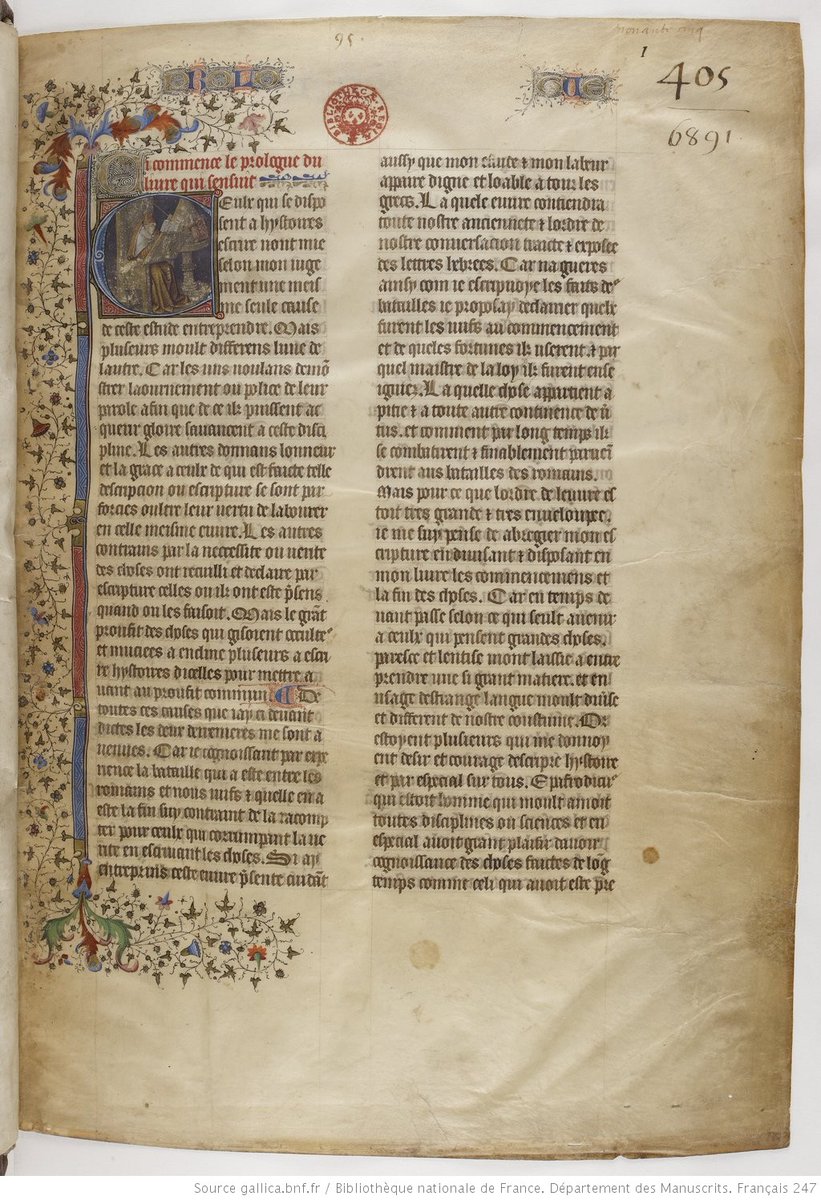 95
I
405
6891
PROLO
GUE
BIBLIOTHECAE REGIAE
Ci commence le prologue du
liure qui sensuit
Ceulz qui se dispo
sent a hystoires
escrire nont mie
selon mon iuge
ment une meis
me seule cause
de ceste estude entreprendre. Mais
pluseurs moult differens lune de
lautre. Car les uns voulans demõ
strer laournement ou police de leur
parole afin que de ce ilz puissent ac
querir gloire sauancent a ceste disci
pline. Les autres donnans lonneur
et la grace a ceulz de qui est faicte telle
descripcion ou escripture se sont par
forciez oultre leur vertu de labourer
en celle meisme euure. Les autres
contrains par la necessite ou verite
des choses ont recuilli et declaire par
escripture celles ou ilz ont este p̃sens
quand on les faisoit. Mais le grãt
proufit des choses qui gisoient occulte
et muciees a encline pluseurs a escri
re hystoires dicelles pour mettre a
uant au proufit commun. De
toutes ces causes que iay ci deuant
dictes les deux derrenieres me sont a
uenues. Car ie cognoissant par expe
rience la bataille qui a este entre les
romains et nous iuifs & quelle en a
este la fin suy contraint de la racomp
ter pour ceulz qui corrumpant la ve
rite en escriuant les choses. Si ay
entrepris ceste euure p̃sente cuidãt
aussy que mon estude & mon labeur
appaire digne et loable a tous les
grecs. La quele euure contiendra
toute nostre anciennete & lordre de
nostre conuersacion traicte & exposee
des lettres hebrees. Car na gueres
ainsy com ie escripuoye les faits de
batailles ie proposay declairer quelz
furent les iuifs au commencement
et de queles fortunes ilz userent. & par
quel maistre de la loy ilz furent ense
igniez. La quelle chose appartient a
pitie & a toute autre continence de ṽ
tus. et comment par long temps ilz
se combatirent & finablement paruẽ
drent aus batailles des romains.
Mais pour ce que lordre de leuure es
toit tres grande & tres enuelopee.
ie me suy pense de abregier mon es
cripture en diuisant & disposant en
mon liure les commencemens et
la fin des choses. Car en temps de
uant passe selon ce qui seult auenir
a ceulz qui pensent grandes choses.
paresce et lentise mont laissie a entre
prendre une si grant matiere. et en
usage destrange langue moult diuise
et different de nostre coustume. Or
estoyent plusieurs qui me donnoy
ent desir et courage descrire hystoire
et par especial sur tous. Epafrodicus
qui estoit homme qui moult amoit
toutes disciplines ou sciences et en
especial auoit grant plaisir dauoir
cognoissance des choses faictes de lõg
temps comme celi qui auoit este pre
Source gallica.bnf.fr / Bibliothèque nationale de France. Département des Manuscrits. Français 247